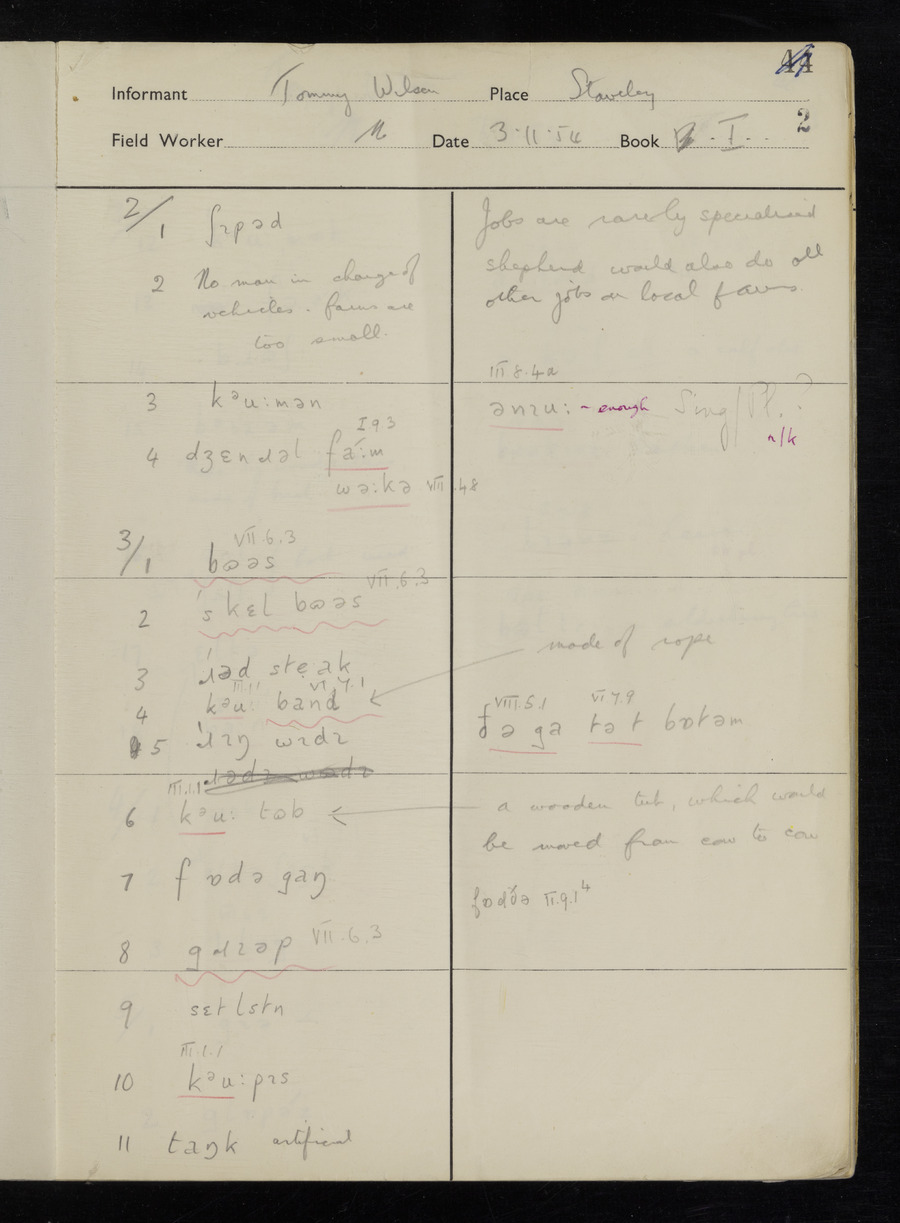 Informant Tommy Wilson Place Staveley
Field Worker Date 3·11·54 Book I
2
2/1 ʃɪpəd
2 No man in charge of
vehicles. farms are
too small.
Jobs are rarely specialised
shepherd would also do all
other jobs on local farms.
III 8.4a
3 kᵊu:mən
ənɪu: ~ enough Sing/Pl.?
n/k
I 9 3
4 dʒɛnɹəl fa:m
wə:kə VII .48
VII.6.3
3/1 bʊəs
VII.6.3
2 'skɛl bʊəs
made of rope
3 'ɹəd steak
III.1.1 VI.7.1
4 kᵊu: band
VIII.5.1 VI 7.9
ðə ga tət bɒtəm
5 'ɹɪŋ wɪdɪ
III.1.1
6 kᵊu: tʊb
a wooden tub, which would
be moved from cow to cow
7 fɒdə gaŋ
fɒdðə II.9.1⁴
8 gɹɪəp VII.6.3
9 sɛtlstn
III.1.1
10 kᵊu:pɪs
11 taŋk artificial